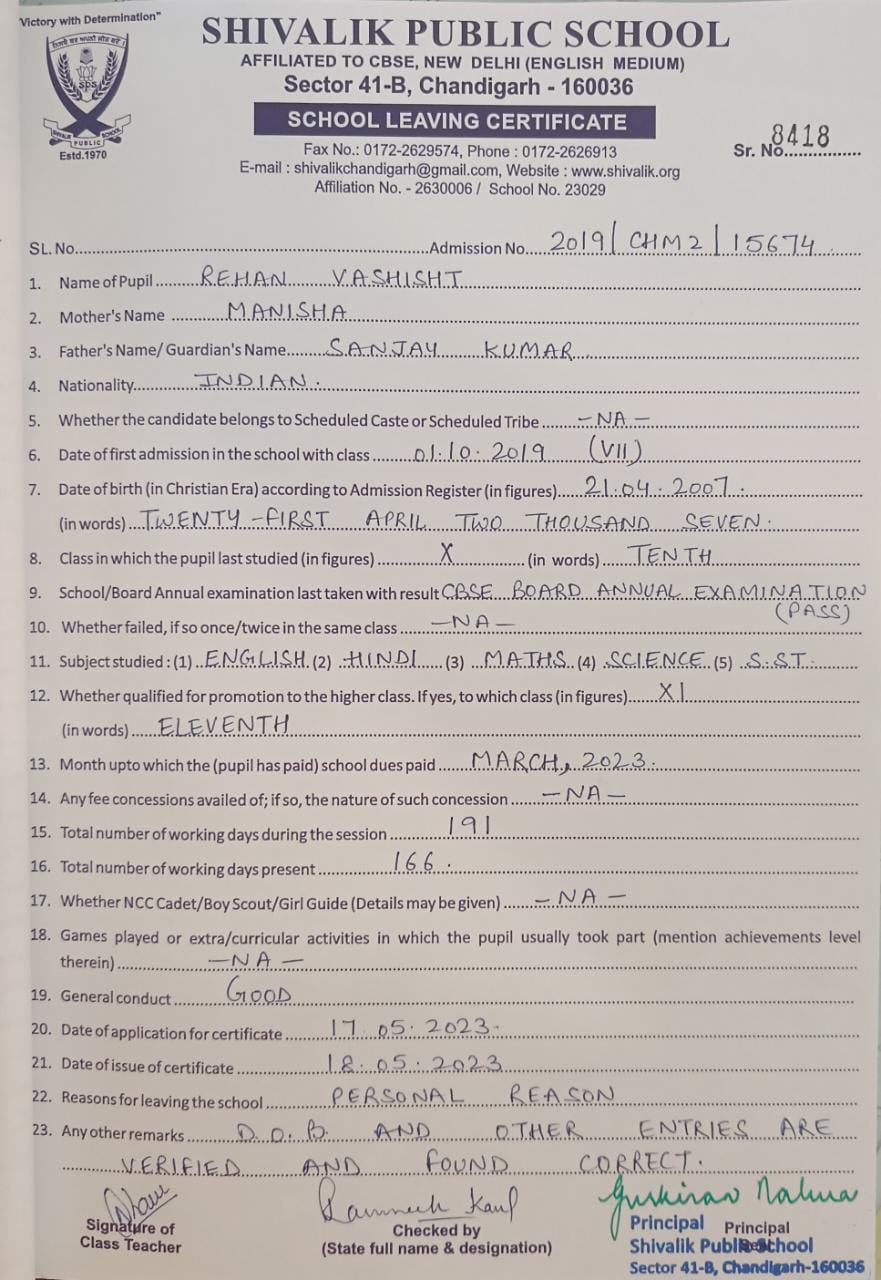 Victory with Determination"
SHIVALIK PUBLIC SCHOOL
AFFILIATED TO CBSE, NEW DELHI (ENGLISH MEDIUM)
Sector 41-B, Chandigarh - 160036
SCHOOL LEAVING CERTIFICATE
SPS
SHIVALIK PUBLIC SCHOOL
Estd.1970
Fax No.: 0172-2629574, Phone : 0172-2626913
E-mail : shivalikchandigarh@gmail.com, Website : www.shivalik.org
Affiliation No. - 2630006 / School No. 23029
Sr. No. 8418
SL. No. Admission No. 2019/CHM2/15674
1. Name of Pupil REHAN VASHISHT
2. Mother's Name MANISHA
3. Father's Name/ Guardian's Name SANJAY KUMAR
4. Nationality INDIAN.
5. Whether the candidate belongs to Scheduled Caste or Scheduled Tribe -NA-
6. Date of first admission in the school with class 01.10.2019 (VII)
7. Date of birth (in Christian Era) according to Admission Register (in figures) 21.04.2007.
(in words) TWENTY-FIRST APRIL TWO THOUSAND SEVEN.
8. Class in which the pupil last studied (in figures) X (in words) TENTH
9. School/Board Annual examination last taken with result CBSE BOARD ANNUAL EXAMINATION
(PASS)
10. Whether failed, if so once/twice in the same class -NA-
11. Subject studied : (1) ENGLISH (2) HINDI (3) MATHS (4) SCIENCE (5) S.ST.
12. Whether qualified for promotion to the higher class. If yes, to which class (in figures) XI
(in words) ELEVENTH
13. Month upto which the (pupil has paid) school dues paid MARCH, 2023.
14. Any fee concessions availed of; if so, the nature of such concession -NA-
15. Total number of working days during the session 191
16. Total number of working days present 166.
17. Whether NCC Cadet/Boy Scout/Girl Guide (Details may be given) -NA-
18. Games played or extra/curricular activities in which the pupil usually took part (mention achievements level
therein) -NA-
19. General conduct GOOD
20. Date of application for certificate 17.05.2023.
21. Date of issue of certificate 18.05.2023
22. Reasons for leaving the school PERSONAL REASON
23. Any other remarks D.O.B. AND OTHER ENTRIES ARE
VERIFIED AND FOUND CORRECT.
Kaul
Signature of
Class Teacher
Checked by
(State full name & designation)
Principal Principal
Shivalik Public School
Sector 41-B, Chandigarh-160036